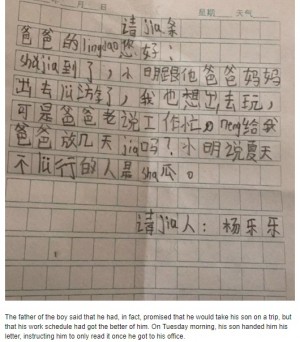 月 日 星期 天气
请jia条
爸爸的lingdao您好：
shǔjia到了，小明跟他爸爸妈妈
出去lü游了，我也想出去玩，
可是爸爸老说工作忙。neng给我
爸爸放几天jia吗？小明说夏天
不lü行的人是sha瓜。
请jia人：杨乐乐
The father of the boy said that he had, in fact, promised that he would take his son on a trip, but
that his work schedule had got the better of him. On Tuesday morning, his son handed him his
letter, instructing him to only read it once he got to his office.